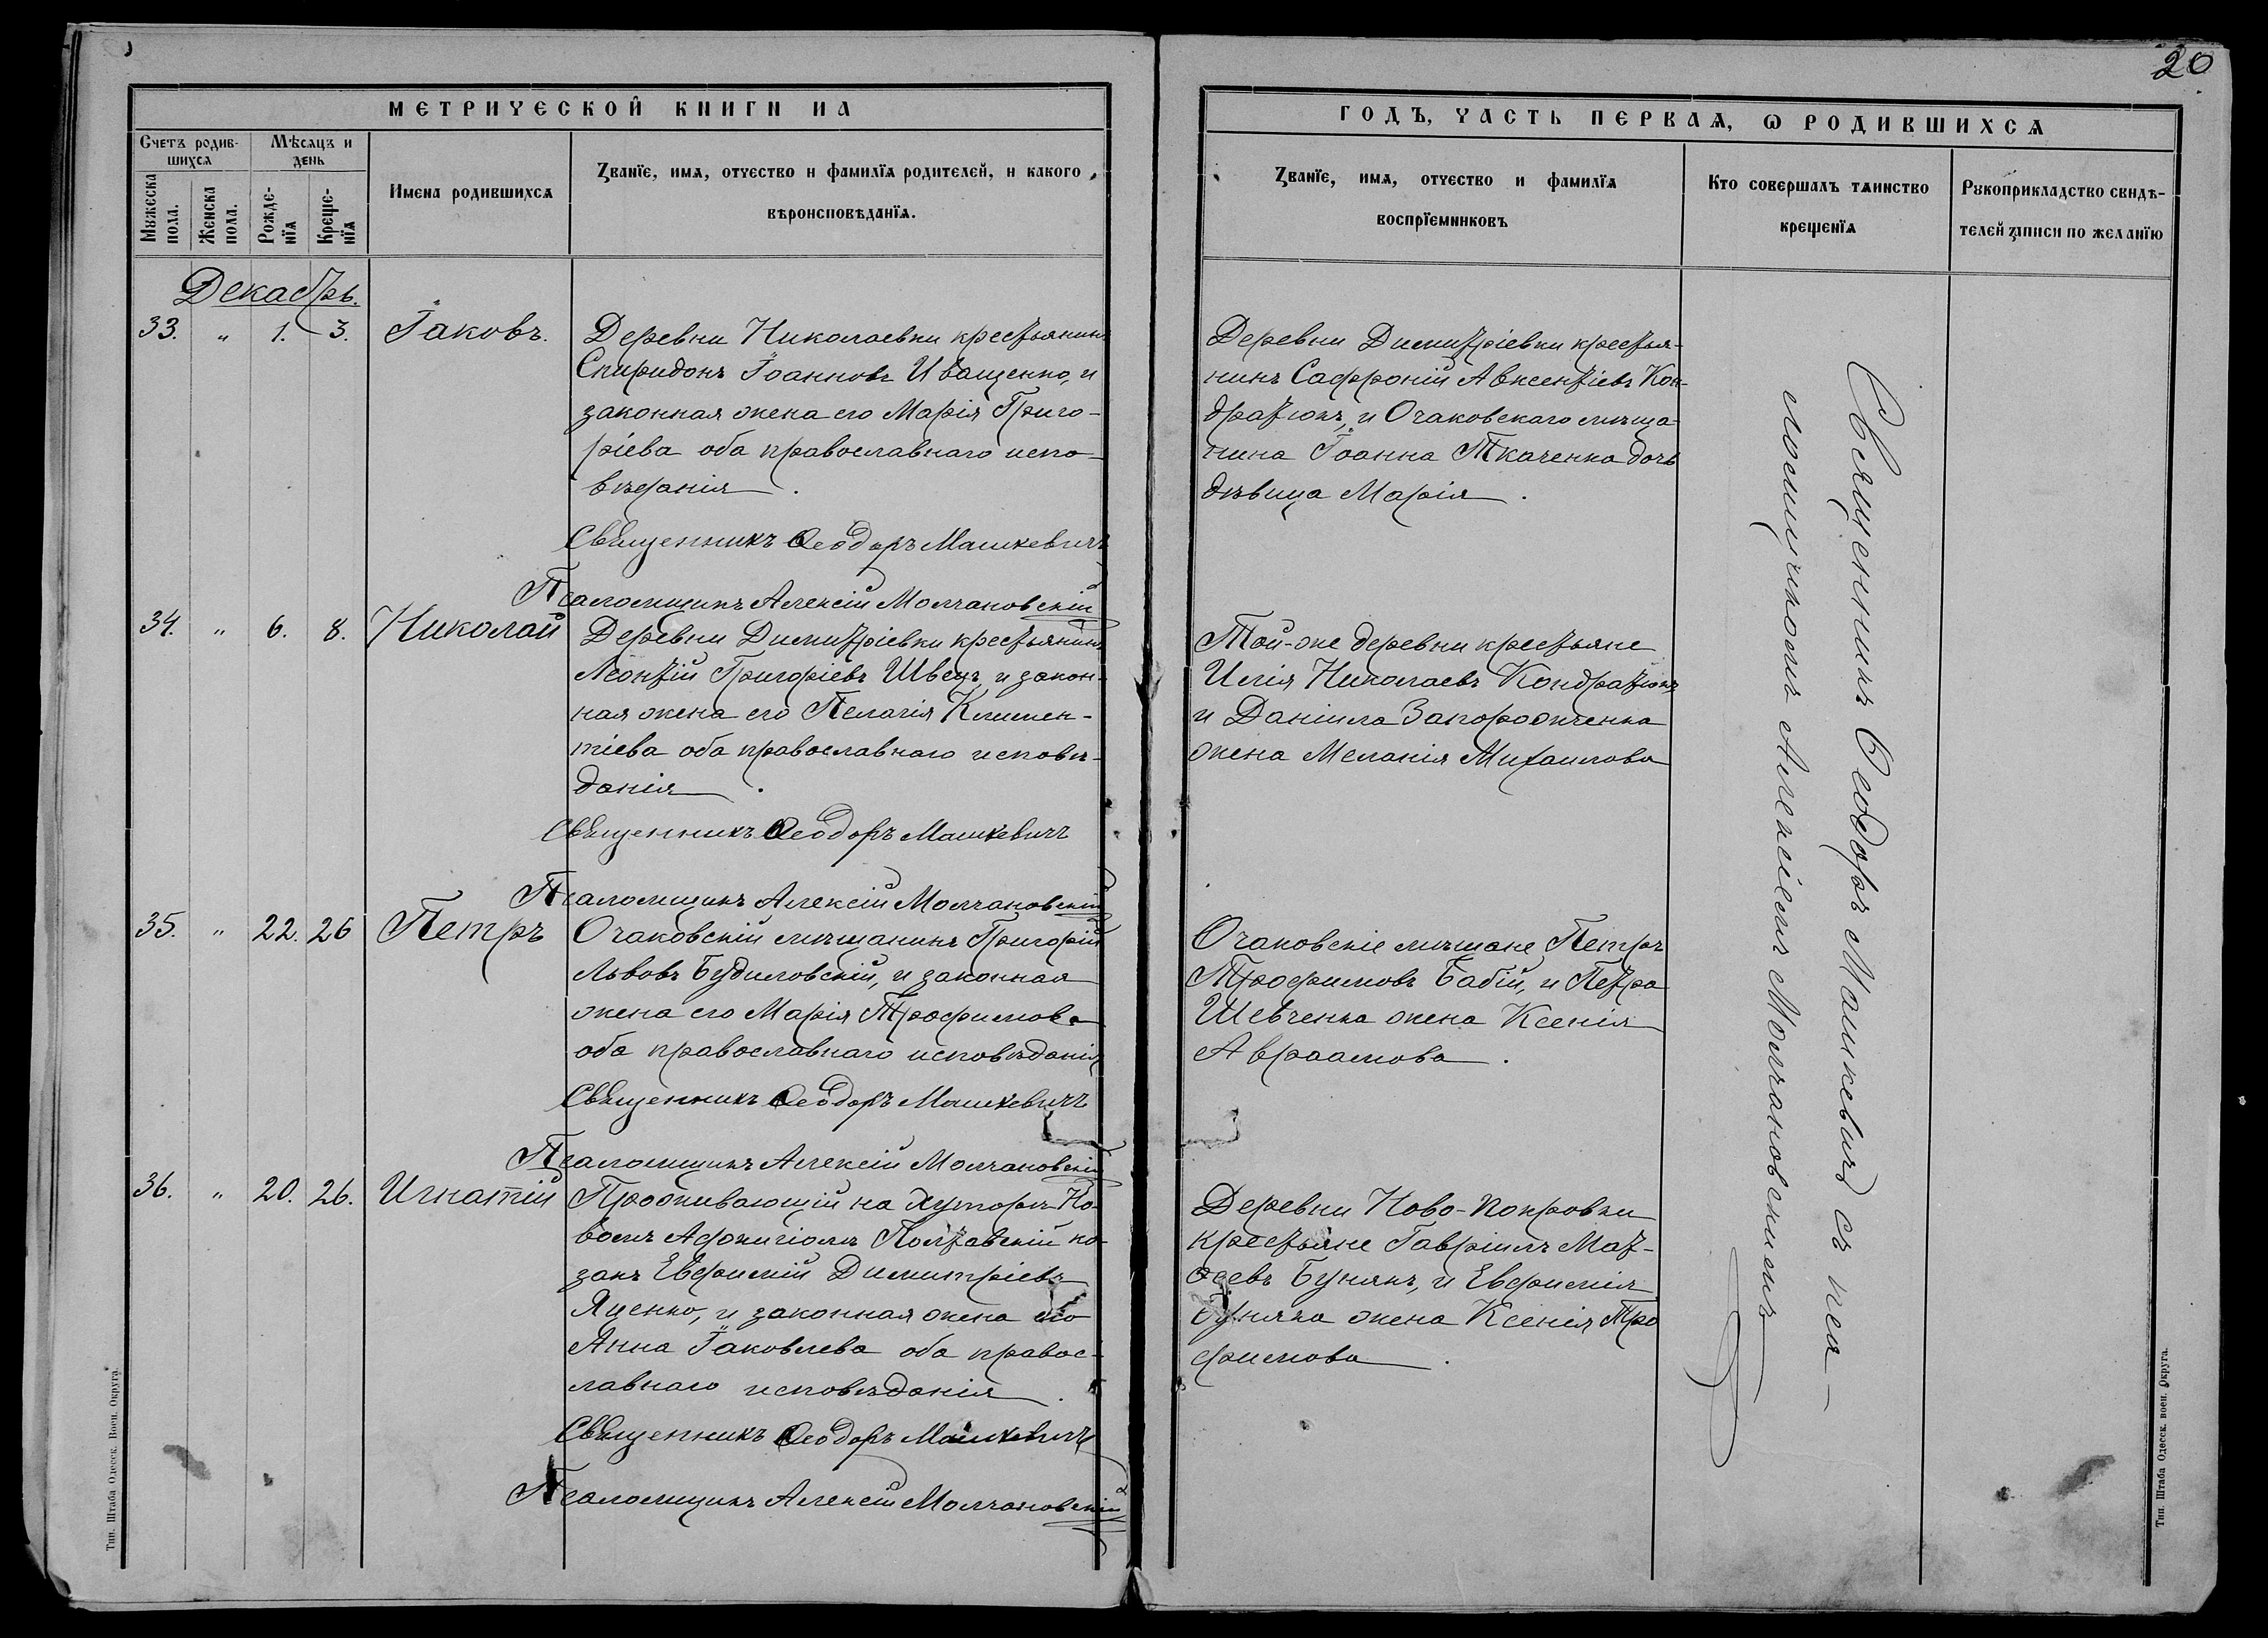 20
МЕТРИЧЕСКОЙ КНИГИ НА
ГОДЪ, ЧАСТЬ ПЕРВАѦ, Ѡ РОДИВШИХСѦ
Счетъ родив-
шихсѧ
Мѣсѧцъ и
день
Мꙋжеска
пола.
Женска
пола.
Рожде-
нїѧ
Креще-
нїѧ
Имена родившихсѧ
Званїе, имѧ, отчество и фамилїѧ родителей, и какого
вѣроисповѣданїѧ.
Званїе, имѧ, отчество и фамилїѧ
воспрїемниковъ
Кто совершалъ таинство
крещенїѧ
Рꙋкоприкладство свидѣ-
телей записи по желанїю
Декабрь.
33. " 1. 3. Іаковъ.
Деревни Николаевки крестьянинъ
Спиридонъ Іоанновъ Иващенко, и
законная жена его Марія Григо-
ріева оба православнаго испо-
вѣданія.
Священникъ Ѳеодоръ Машкевичъ
Псаломщикъ Алексій Молчановскій
Деревни Димитріевки крестья-
нинъ Саффроній Авксентіевъ Кон-
дратюкъ, и Очаковскаго мѣща-
нина Іоанна Ткаченка дочь
дѣвица Марія.
34. " 6. 8. Николай
Деревни Димитріевки крестьянинъ
Леонтій Григоріевъ Швецъ, и закон-
ная жена его Пелагія Климен-
тіева оба православнаго исповѣ-
данія.
Священникъ Ѳеодоръ Машкевичъ
Псаломщикъ Алексій Молчановскій
Той-же деревни крестьяне
Илія Николаевъ Кондратюкъ
и Даніила Запорожченка
жена Меланія Михаилова
35. " 22. 26 Петръ
Очаковскій мѣщанинъ Григорій
Львовъ Будиловскій, и законная
жена его Марія Трофимова
оба православнаго исповѣданія
Священникъ Ѳеодоръ Машкевичъ
Псаломщикъ Алексій Молчановскій
Очаковскіе мѣщане Петръ
Трофимовъ Бабій, и Петра
Шевченка жена Ксенія
Авраамова.
36. " 20. 26. Игнатій
Проживающій на хуторѣ Но-
вомъ Полтавскій ко-
закъ Евфимій Димитріевъ
Яценко, и законная жена его
Анна Іаковлева оба правос-
лавнаго исповѣданія.
Священникъ Ѳеодоръ Машкевичъ
Псаломщикъ Алексій Молчановскій
Деревни Ново-Покровки
крестьяне Гавріилъ Мат-
ѳеевъ Бунякъ, и Евфимія
Буняка жена Ксенія Тро
фимова.
Священникъ Ѳеодоръ Машкевичъ съ пса-
ломщикомъ Алексіемъ Молчановскимъ
Тип. Штаба Одесск. Воен. Округа.
Тип. Штаба Одесск. воен. Округа.